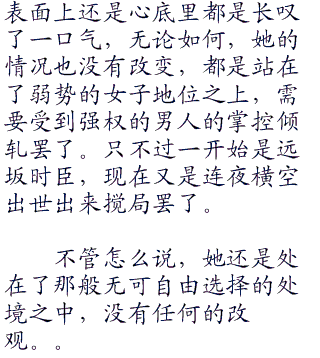 表面上还是心底里都是长叹
了一口气，无论如何，她的
情况也没有改变，都是站在
了弱势的女子地位之上，需
要受到强权的男人的掌控倾
轧罢了。只不过一开始是远
坂时臣，现在又是连夜横空
出世出来搅局罢了。
不管怎么说，她还是处
在了那般无可自由选择的处
境之中，没有任何的改
观。。